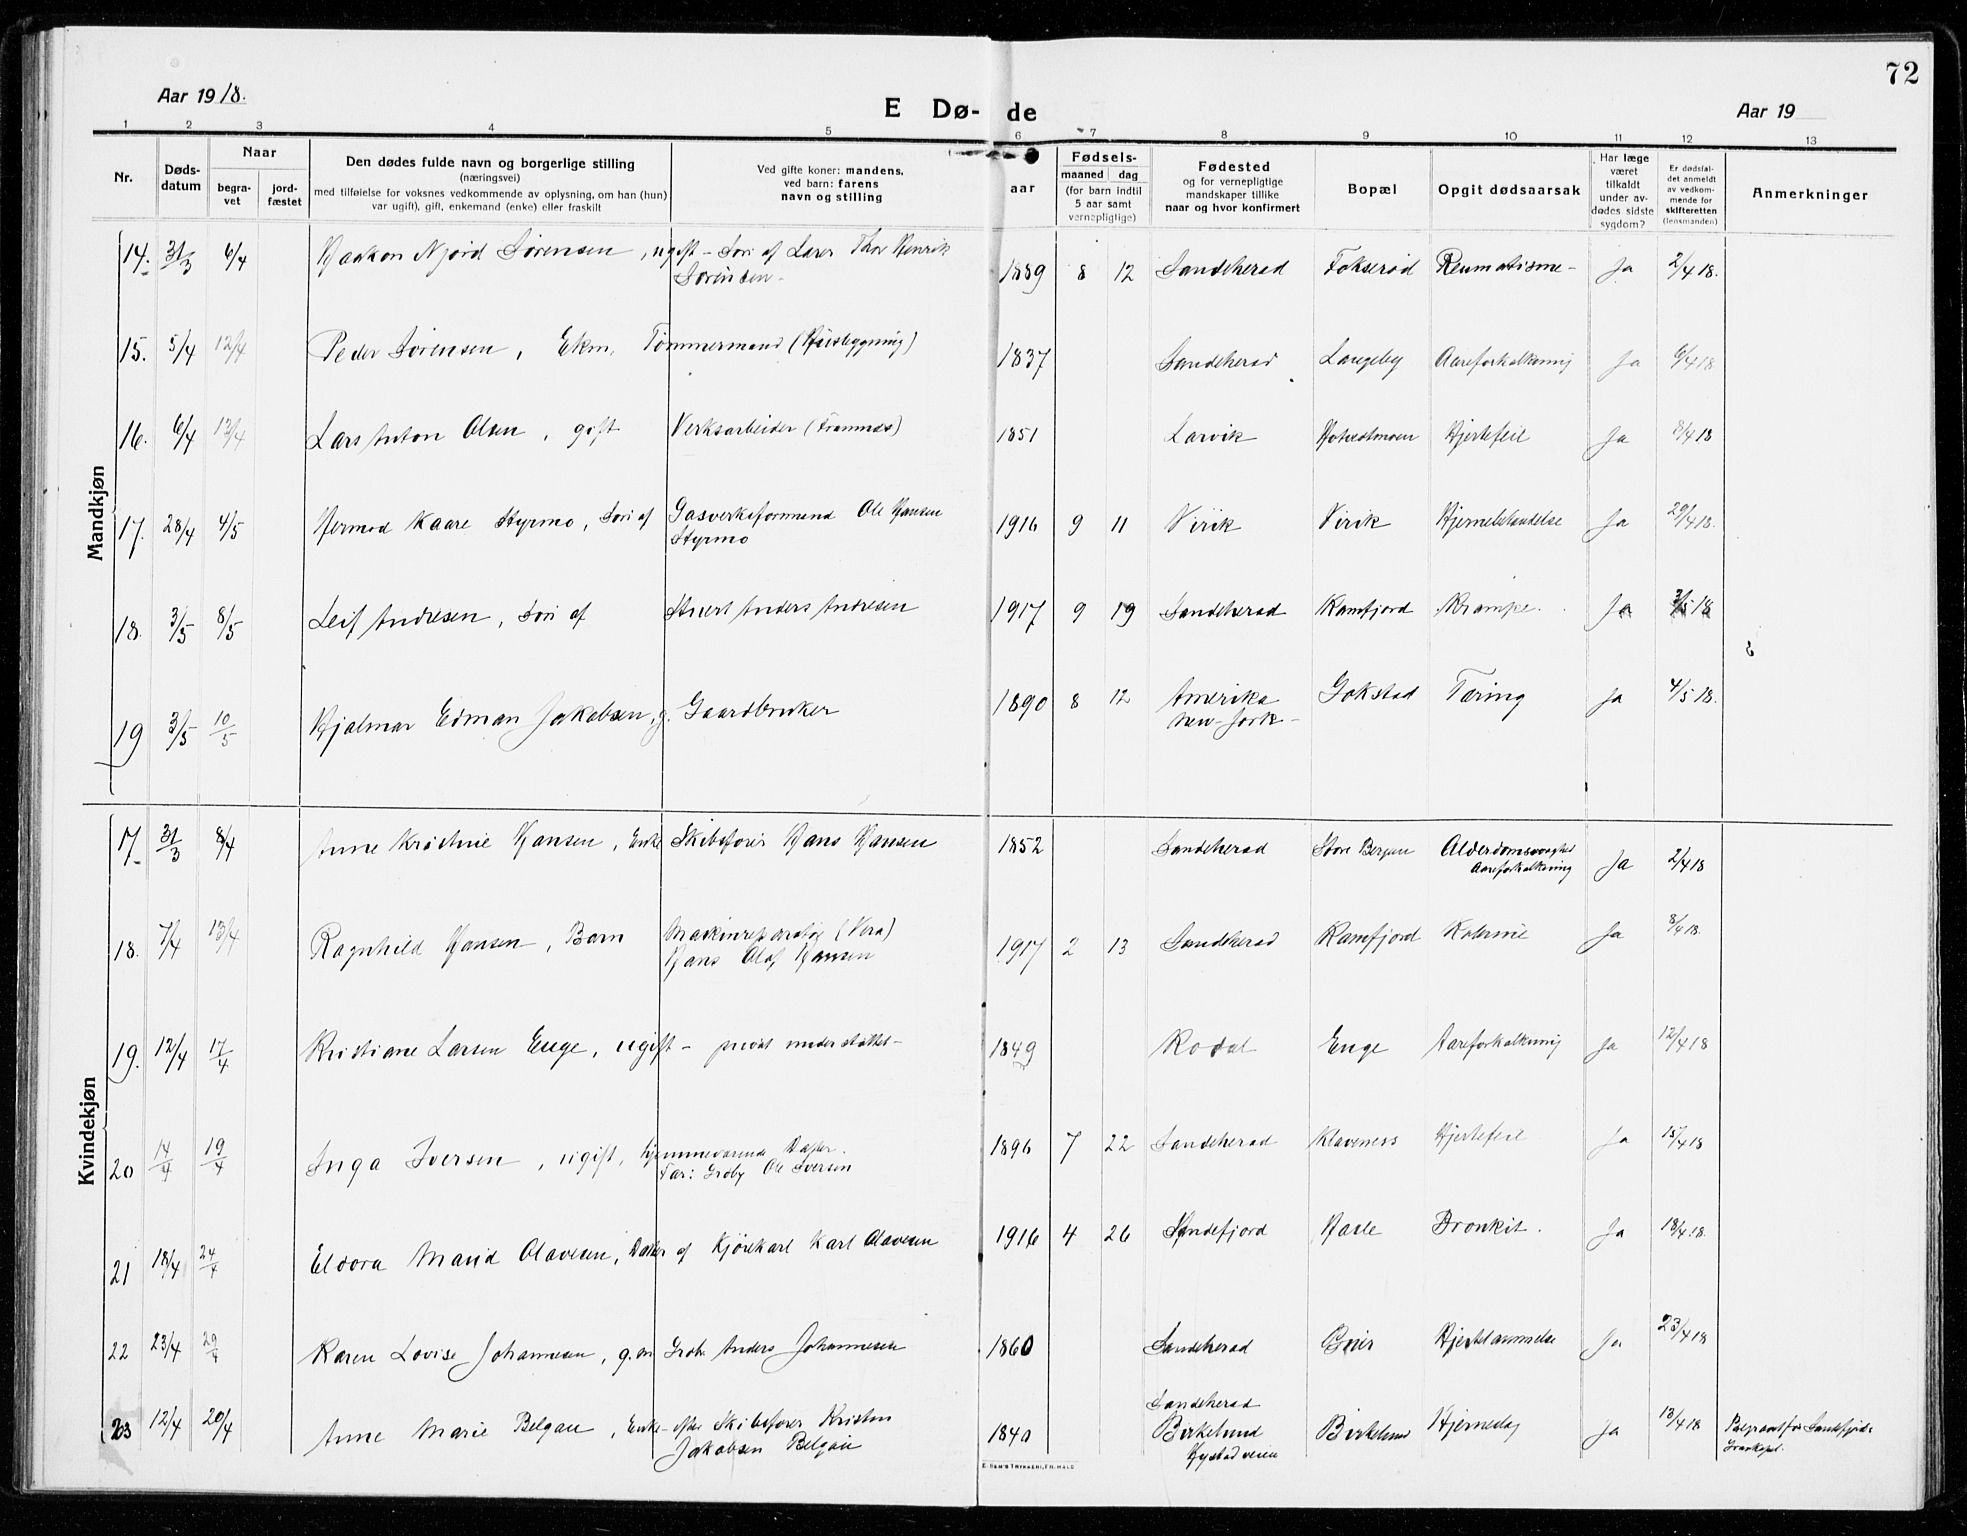 72
Aar 1918.
E Dø-de
Aar 19
1 2 3 4 5 6 7 8 9 10 11 12 13
Nr.
Døds-datum
Naar
begra-vet
jord-fæstet
Den dødes fulde navn og borgerlige stilling
(næringsvei)
med tilføielse for voksnes vedkommende av oplysning, om han (hun)
var ugift), gift, enkemand (enke) eller fraskilt
Ved gifte koner: mandens,
ved barn: farens
navn og stilling
aar
Fødsels-
maaned dag
(for barn indtil
5 aar samt
vernepligtige)
Fødested
og for vernepligtige
mandskaper tillike
naar og hvor konfirmert
Bopæl
Opgit dødsaarsak
Har læge
været
tilkaldt
under av-
dødes sidste
sygdom?
Er dødsfal-
det anmeldt
av vedkom-
mende for
skifteretten
(lensmanden)
Anmerkninger
Mandkjøn
14. 31/3 6/4 Haakon Njord Sørensen, ugift - Søn af Lærer Thor Henrik
Sørensen - 1889 8 12 Sandeherad Fokserød Reumatisme - Ja 2/4 18.
15. 5/4 12/4 Peder Sørensen, Ekm. Tømmermand (Husbygning) 1837 Sandeherad Langeby Aareforkalkning Ja 6/4 18
16. 6/4 13/4 Lars Anton Olsen, gift Verksarbeider (Framnæs) 1851 Larvik Hjertefeil Ja 8/4 18
17. 28/4 4/5 Hermod Kaare Styrmo, Søn af Gasverksformand Ole Hansen
Styrmo 1916 9 11 Virik Virik Hjernebetændelse Ja 29/4 18.
18. 3/5 8/5 Leif Andresen, Søn af Anders Andresen 1917 9 19 Sandeherad Kamfjord Krampe. Ja 3/5 18
19 3/5 10/5 Hjalmar Edman Jakobsen, g. Gaardbruker 1890 8 12 Amerika
New-Jork - Gokstad Tæring Ja 4/5 18.
Kvindekjøn
17. 31/3 8/4 Anne Kristine Hansen, Enke Skibsfører Hans Hansen 1852 Sandeherad Store Bergan Alderdomssvaghet
Aareforkalkning Ja 2/4 18
18. 7/4 13/4 Ragnhild Hansen, Barn Maskinreparatør (Vera)
Hans Olaf Hansen 1917 2 13 Sandeherad Kamfjord Ja 8/4 18.
19. 12/4 17/4 Kristiane Larsen Enge, ugift - privat understøttet - 1849 Kodal Enge Aareforkalkning Ja 12/4 18
20 14/4 19/4 Inga Iversen, ugift, hjemmeværende Datter.
Far: Grdby Ole Iversen 1896 7 22 Sandeherad Klaveness Hjertefeil Ja 15/4 18
21 18/4 24/4 Eldora Marid Olavesen, Datter af Kjørekarl Karl Olavesen 1916 4 26 Sandefjord Hasle Bronkit. Ja 18/4 18.
22 23/4 29/4 Karen Lovise Johannesen, g.m Grdbr. Anders Johannesen 1860 Sandeherad Hjertelammelse Ja. 23/4 18
23 12/4 20/4 Anne Marie Belgau, Enke - efter Skibsfører Kristen
Jakobsen Belgau 1840 Sandeherad
Birkelund
Hystadveien Birkelund Hjerneslag Ja 13/4 18 Sandefjords
Gravkapel.
E. SEM'S TRYKKERI, FR. HALD